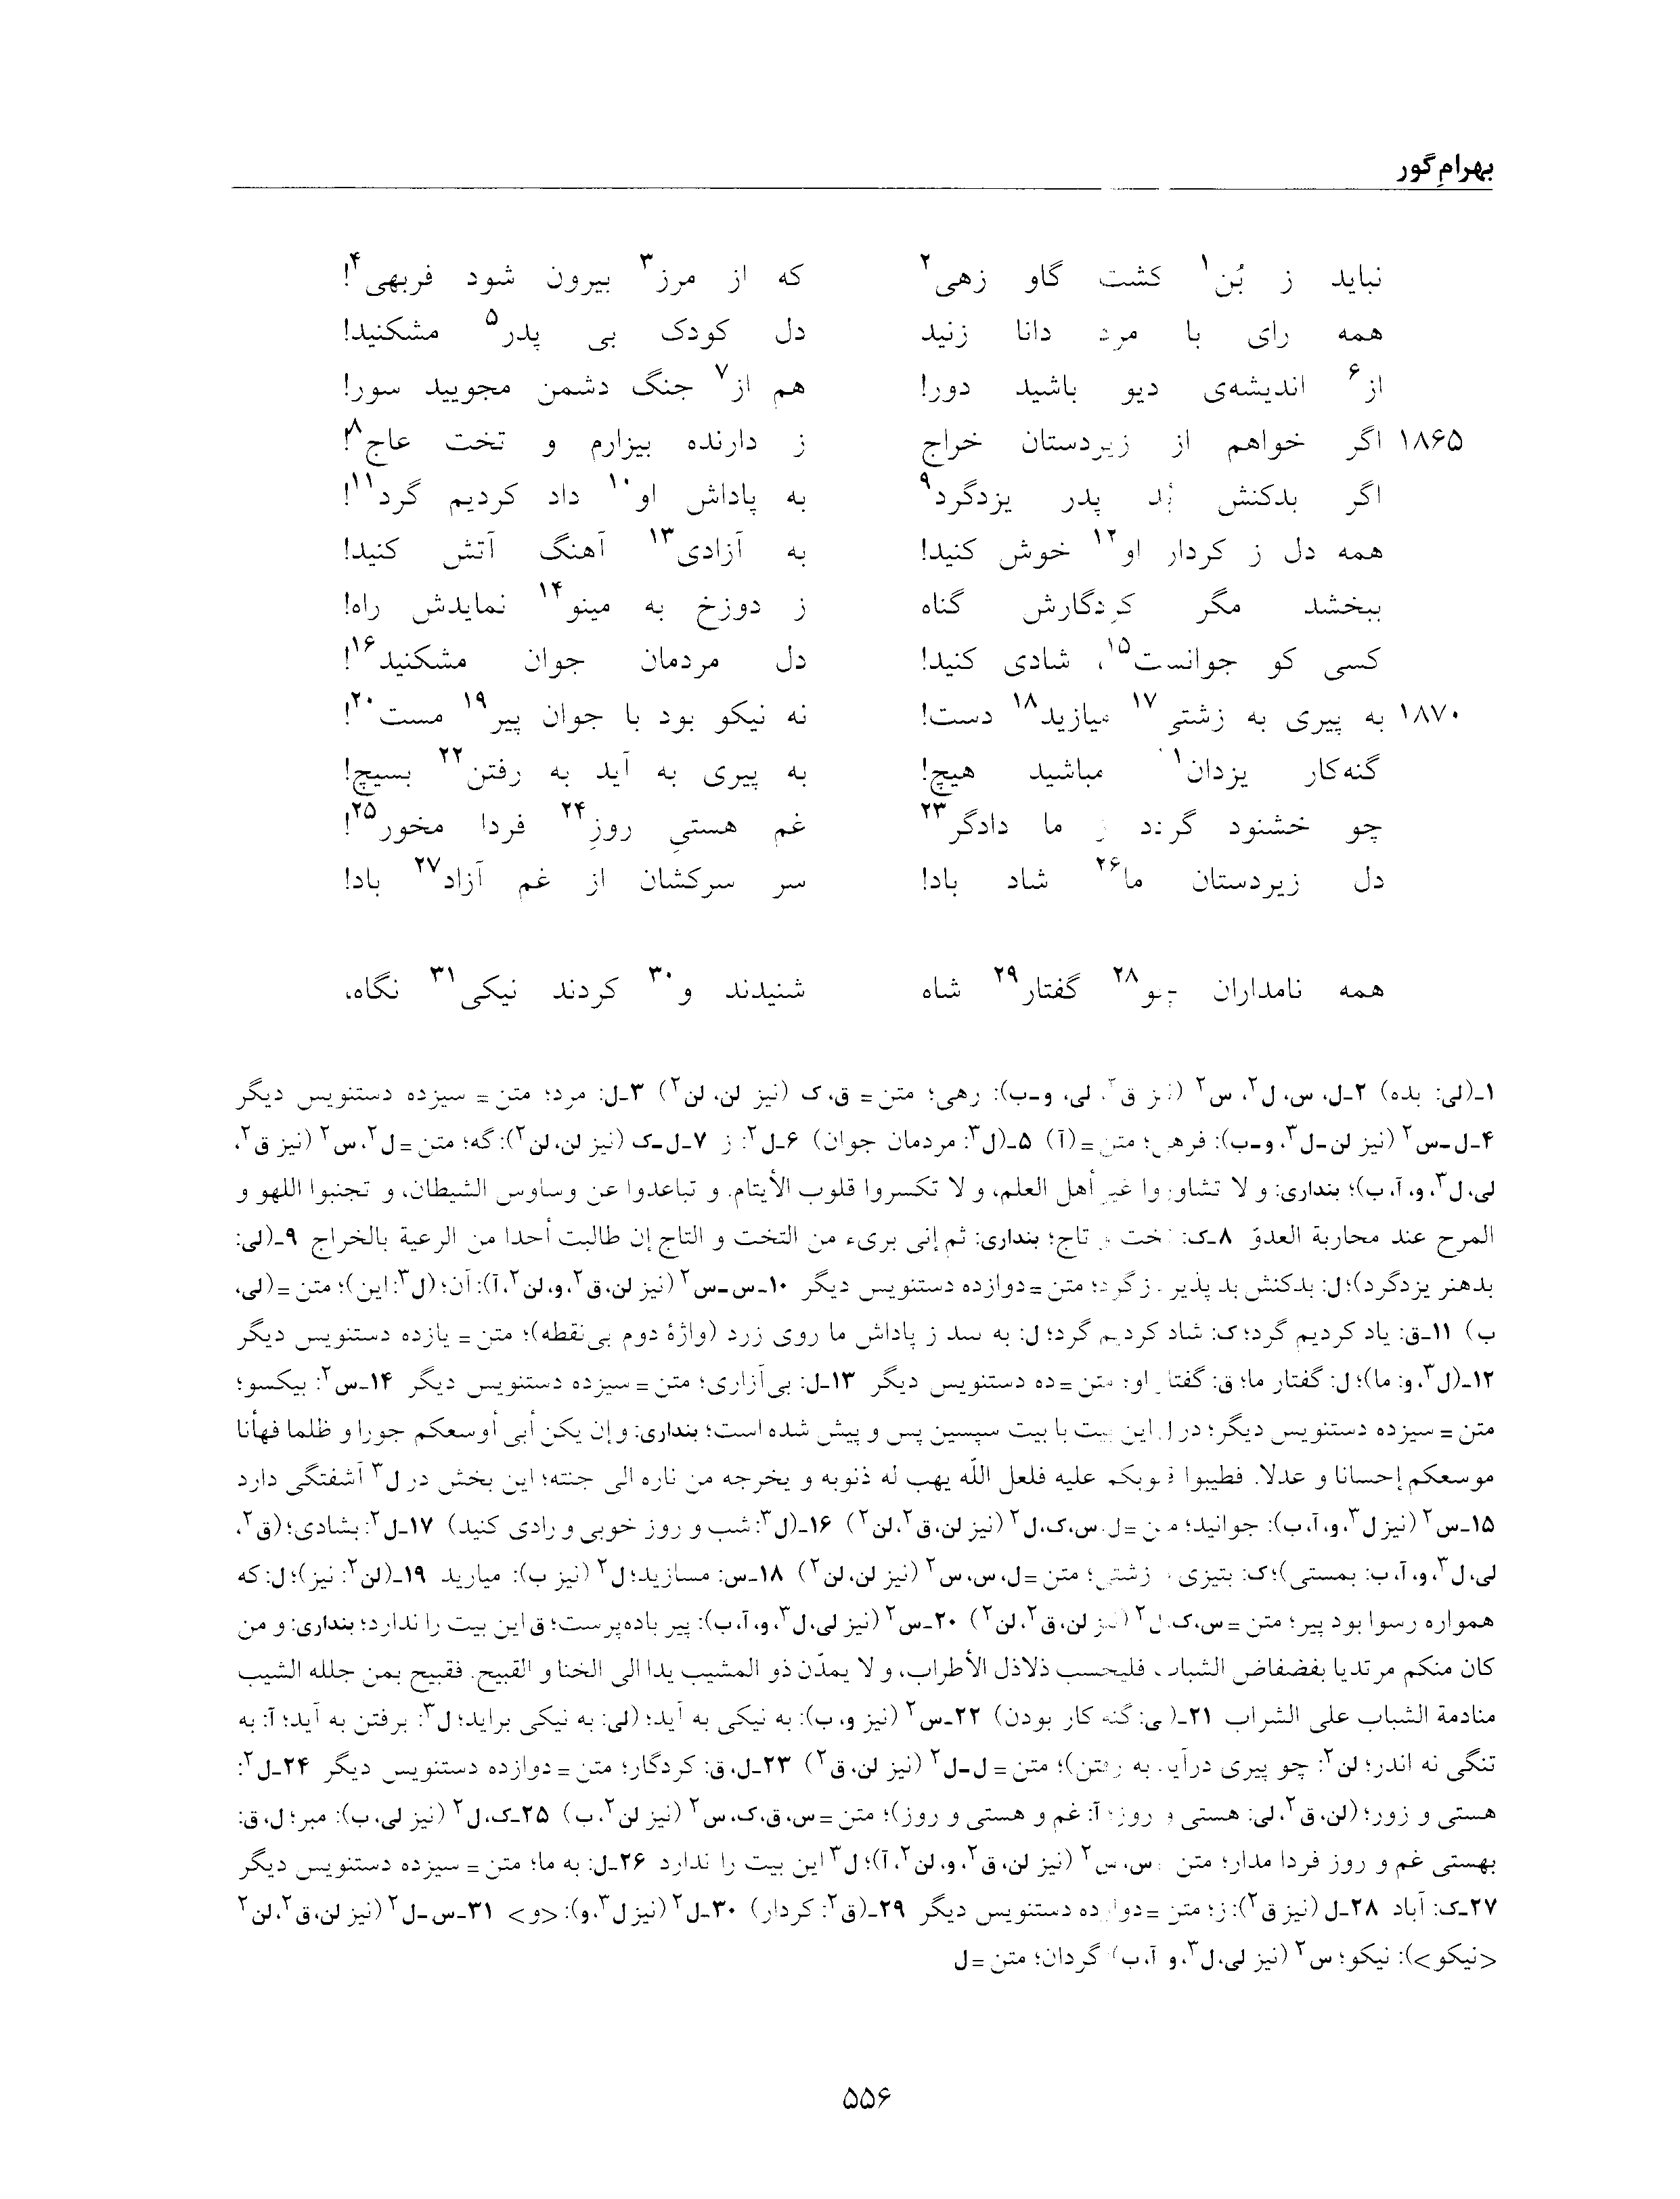 بهرامِ گور
نباید ز بُن۱ کشت گاو زهی۲ که از مرز۳ بیرون شود فربهی۴!
همه رای با مرد دانا زنید دل کودک بی پدر۵ مشکنید!
از۶ اندیشه‌ی دیو باشید دور! هم از۷ جنگ دشمن مجویید سور!
۱۸۶۵ اگر خواهم از زیردستان خراج ز دارنده بیزارم و تخت عاج۸!
اگر بدکنش بُد پدر یزدگرد۹ به پاداش او۱۰ داد کردیم گرد۱۱!
همه دل ز کردار او۱۲ خوش کنید! به آزادی۱۳ آهنگ آتش کنید!
ببخشد مگر کردگارش گناه ز دوزخ به مینو۱۴ نمایدش راه!
کسی کو جوانست۱۵، شادی کنید! دل مردمان جوان مشکنید۱۶!
۱۸۷۰ به پیری به زشتی۱۷ میازید۱۸ دست! نه نیکو بود با جوان پیر۱۹ مست۲۰!
گنه‌کار یزدان مباشید هیچ! به پیری به آید به رفتن۲۲ بسیچ!
چو خشنود گردد ز ما دادگر۲۳ غم هستیِ روزِ۲۴ فردا مخور۲۵!
دل زیردستان ما۲۶ شاد باد! سر سرکشان از غم آزاد۲۷ باد!
همه نامداران چو۲۸ گفتار۲۹ شاه شنیدند و۳۰ کردند نیکی۳۱ نگاه،
۱ـ(لی: بده) ۲ـل، س، ل۲، س۲ (نیز ق۲، لی، و-ب): رهی؛ متن= ق،ک (نیز لن، لن۲) ۳ـل: مرد؛ متن= سیزده دستنویس دیگر
۴ـل-س۲ (نیز لن-ل۳، و-ب): فرهی؛ متن=(آ) ۵ـ(ل۳: مردمان جوان) ۶ـل۲: ز ۷ـل-ک (نیز لن، لن۲): گه؛ متن=ل۲، س۲ (نیز ق۲،
لی، ل۳، و، آ، ب)؛ بنداری: و لا تشاوروا غیر أهل العلم، و لا تکسروا قلوب الأیتام. و تباعدوا عن وساوس الشیطان، و تجنبوا اللهو و
المرح عند محاربة العدوّ ۸ـک: تخت و تاج؛ بنداری: ثم إنی بریء من التخت و التاج إن طالبت أحدا من الرعیة بالخراج ۹ـ(لی:
بدهنر یزدگرد)؛ل: بدکنش بد پذیر گرد؛ متن=دوازده دستنویس دیگر ۱۰ـس-س۲ (نیز لن،ق۲،و،لن۲،آ): آن؛ (ل۳: این)؛ متن=(لی،
ب) ۱۱ـق: یاد کردیم گرد؛ک: شاد کردیم گرد؛ ل: به سد ز پاداش ما روی زرد (واژهٔ دوم بی‌نقطه)؛ متن= یازده دستنویس دیگر
۱۲ـ(ل۳، و: ما)؛ ل: گفتار ما؛ ق: گفتار او؛ متن=ده دستنویس دیگر ۱۳ـل: بی‌آزاری؛ متن= سیزده دستنویس دیگر ۱۴ـس۲: بیکسو؛
متن= سیزده دستنویس دیگر؛ در ل این بیت با بیت سپسین پس و پیش شده است؛ بنداری: و إن یکن أبی أوسعکم جورا و ظلما فهأنا
موسعکم إحسانا و عدلا. فطیبوا قلوبکم علیه فلعل اللّه یهب له ذنوبه و یخرجه من ناره الی جنته؛ این بخش در ل۳ آشفتگی دارد
۱۵ـس۲ (نیز ل۳، و، آ، ب): جوانید؛ متن=ل،س،ک،ل۲ (نیز لن،ق۲،لن۲) ۱۶ـ(ل۳: شب و روز خوبی و رادی کنید) ۱۷ـل۲: بشادی؛ (ق۲،
لی،ل۳، و،آ،ب: بمستی)؛ک: بتیزی زشتی؛ متن=ل،س،س۲ (نیز لن،لن۲) ۱۸ـس: مسازید؛ ل۲ (نیز ب): میارید ۱۹ـ(لن۲: نیز)؛ ل: که
همواره رسوا بود پیر؛ متن=س،ک،ل۲ (نیز لن،ق۲،لن۲) ۲۰ـس۲ (نیز لی،ل۳، و،آ،ب): پیر باده‌پرست؛ ق این بیت را ندارد؛ بنداری: و من
کان منکم مرتدیا بفضفاض الشباب فلیحسب ذلاذل الأطراب، و لا یمدّن ذو المشیب یدا الی الخنا و القبیح. فقبیح بمن جلله الشیب
منادمة الشباب علی الشراب ۲۱ـ(لی: گنه کار بودن) ۲۲ـس۲ (نیز و، ب): به نیکی به آید؛ (لی: به نیکی براید؛ ل۳: برفتن به آید؛ آ: به
تنگی نه اندر؛ لن۲: چو پیری درآید به رفتن)؛ متن= ل-ل۲ (نیز لن،ق۲) ۲۳ـل،ق: کردگار؛ متن= دوازده دستنویس دیگر ۲۴ـل۲:
هستی و زور؛ (لن،ق۲،لی: هستی و روز؛ آ: غم و هستی و روز)؛ متن=س،ق،ک،س۲ (نیز لن۲،ب) ۲۵ـک،ل۲ (نیز لی،ب): مبر؛ ل،ق:
بهستی غم و روز فردا مدار؛ متن س،س۲ (نیز لن،ق۲، و،لن۲،آ)؛ ل۳ این بیت را ندارد ۲۶ـل: به ما؛ متن= سیزده دستنویس دیگر
۲۷ـک: آباد ۲۸ـل (نیز ق۲): ز؛ متن=دوازده دستنویس دیگر ۲۹ـ(ق۲: کردار) ۳۰ـل۲ (نیز ل۳، و): <و> ۳۱ـس-ل۲ (نیز لن،ق۲،لن۲
<نیکو>): نیکو؛ س۲ (نیز لی،ل۳، و آ،ب) گردان؛ متن=ل
۵۵۶